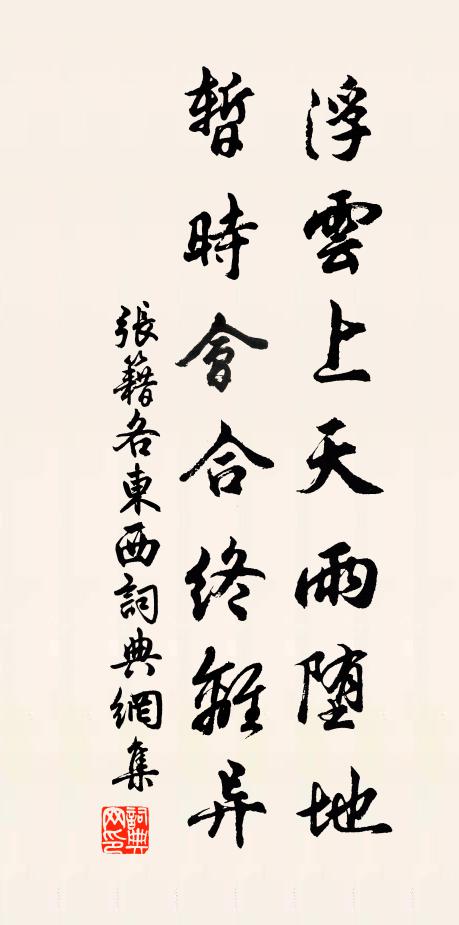 浮雲上天雨墮地
暫時會合終離异
張籍各東西詞典網集
詞典網印